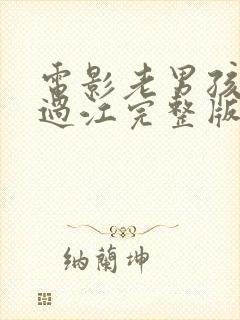 電影老男孩
過江完整版
納蘭坤